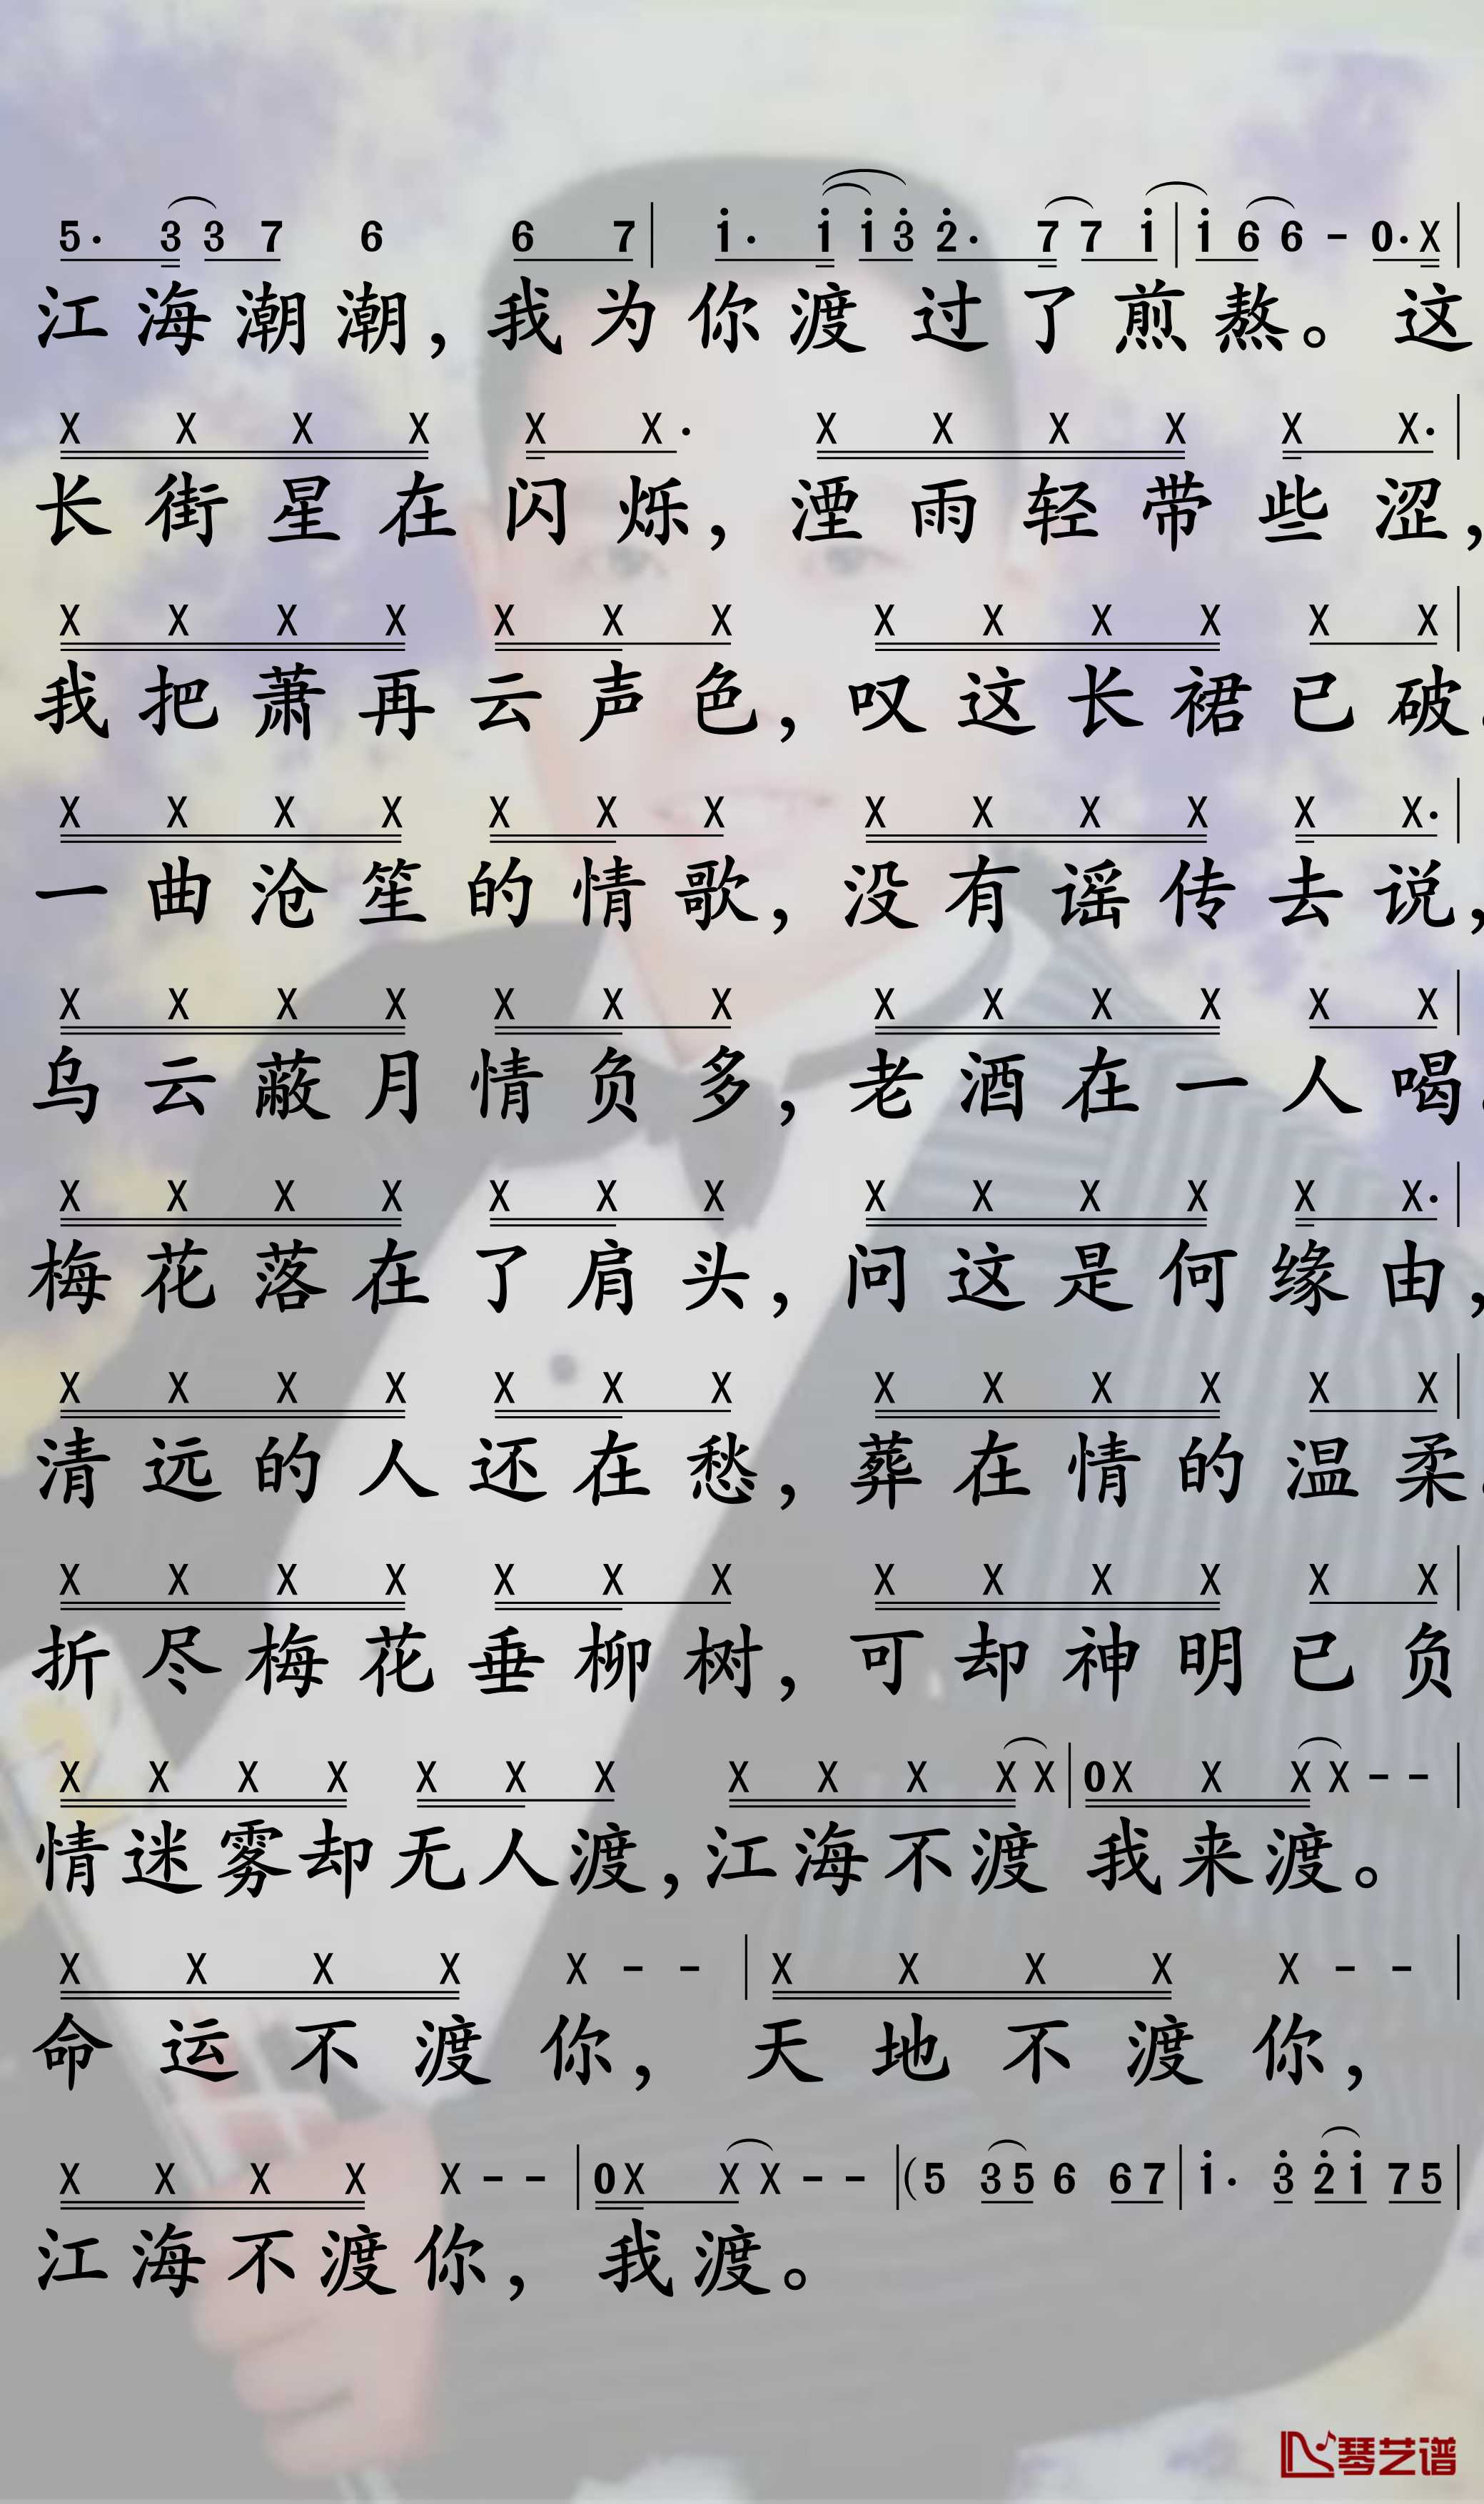 5· 3 3 7 6 6 7 | i· i i 3 2· 7 7 i | i 6 6 - 0· X |
江海潮潮，我为你渡过了煎熬。这
X X X X X X· X X X X X X· |
长街星在闪烁，湮雨轻带些涩，
X X X X X X X X X X X X X |
我把萧再云声色，叹这长裙已破
X X X X X X X X X X X X X· |
一曲沧笙的情歌，没有谣传去说，
X X X X X X X X X X X X X |
乌云蔽月情负多，老酒在一人喝
X X X X X X X X X X X X X· |
梅花落在了肩头，问这是何缘由，
X X X X X X X X X X X X X |
清远的人还在愁，葬在情的温柔
X X X X X X X X X X X X X |
折尽梅花垂柳树，可却神明已负
X X X X X X X X X X X X | 0 X X X X - - |
情迷雾却无人渡，江海不渡 我来渡。
X X X X X - - | X X X X X - - |
命运不渡你，天地不渡你，
X X X X X - - | 0 X X X - - | (5 3 5 6 6 7 | i· 3 2 i 7 5 |
江海不渡你，我渡。
琴艺谱